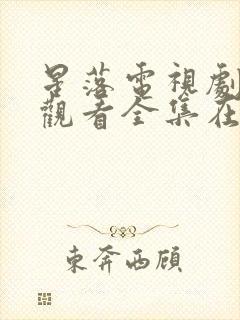 星落電視劇
觀看全集在
東奔西顧